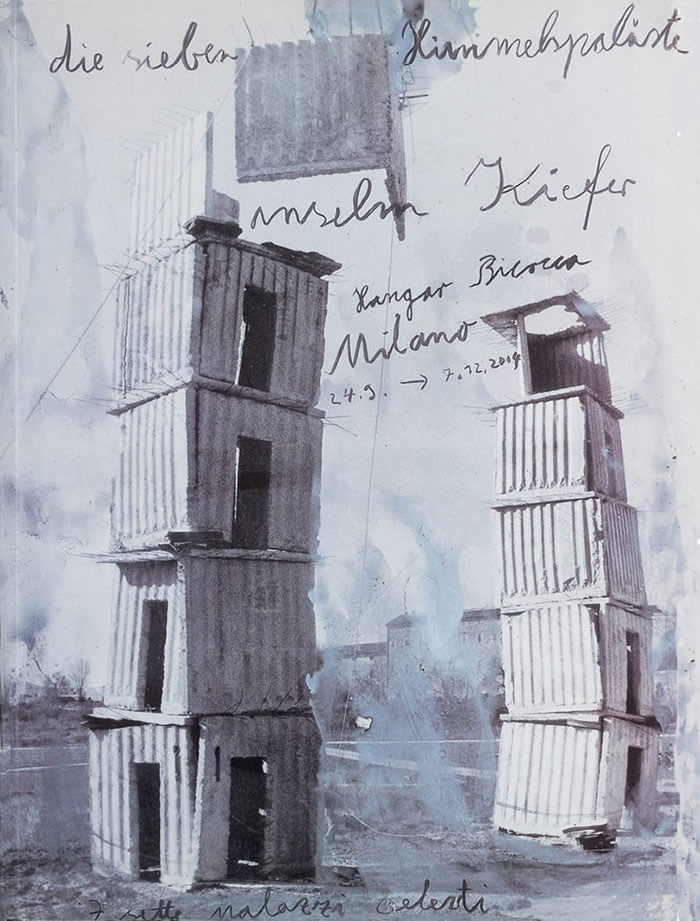 die sieben Himmelspaläste
anselm Kiefer
Hangar Bicocca
Milano
24.9. → 7.12.2004
7 sette palazzi celesti